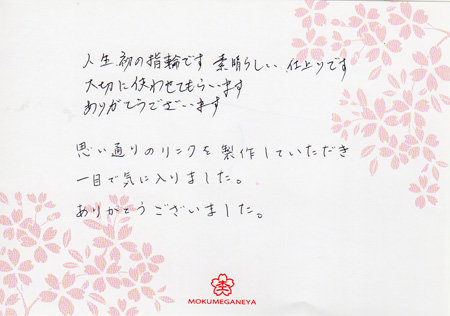 人生初の指輪です 素晴らしい 仕上りです
大切に使わせてもらいます
ありがとうございます
思い通りのリングを製作していただき
一目で気に入りました。
ありがとうございました。
MOKUMEGANEYA